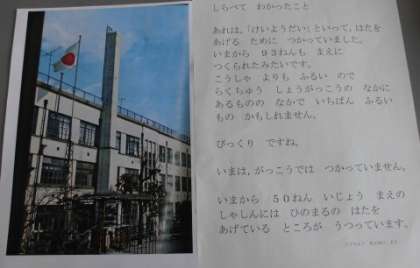 しらべて わかったこと
あれは、「けいようだい」といって、はたを
あげる ために つかっていました。
いまから 93ねんも まえに
つくられたみたいです。
こうしゃ よりも ふるい ので
らくちゅう しょうがっこうの なかに
あるものの なかで いちばん ふるい
もの かもしれません。
びっくり ですね。
いまは、がっこうでは つかっていません。
いまから 50ねん いじょう まえの
しゃしんには ひのまるの はたを
あげている ところが うつっています。